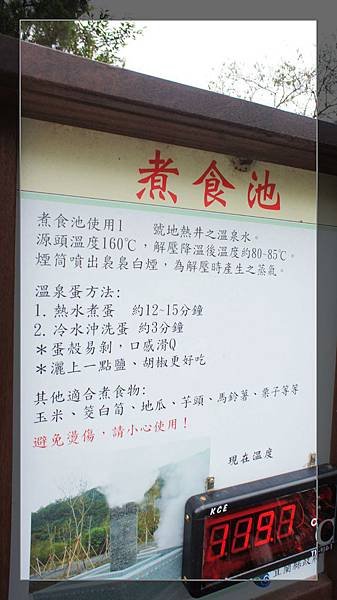 煮食池
煮食池使用1 號地熱井之溫泉水。
源頭溫度160℃，解壓降溫後溫度約80~85℃。
煙筒噴出裊裊白煙，為解壓時產生之蒸氣。
溫泉蛋方法:
1. 熱水煮蛋 約12~15分鐘
2. 冷水沖洗蛋 約3分鐘
＊蛋殼易剝，口感滑Q
＊灑上一點鹽、胡椒更好吃
其他適合煮食物:
玉米、筊白筍、地瓜、芋頭、馬鈴薯、栗子等等
避免燙傷，請小心使用！
現在溫度
KCE
宜蘭縣政府